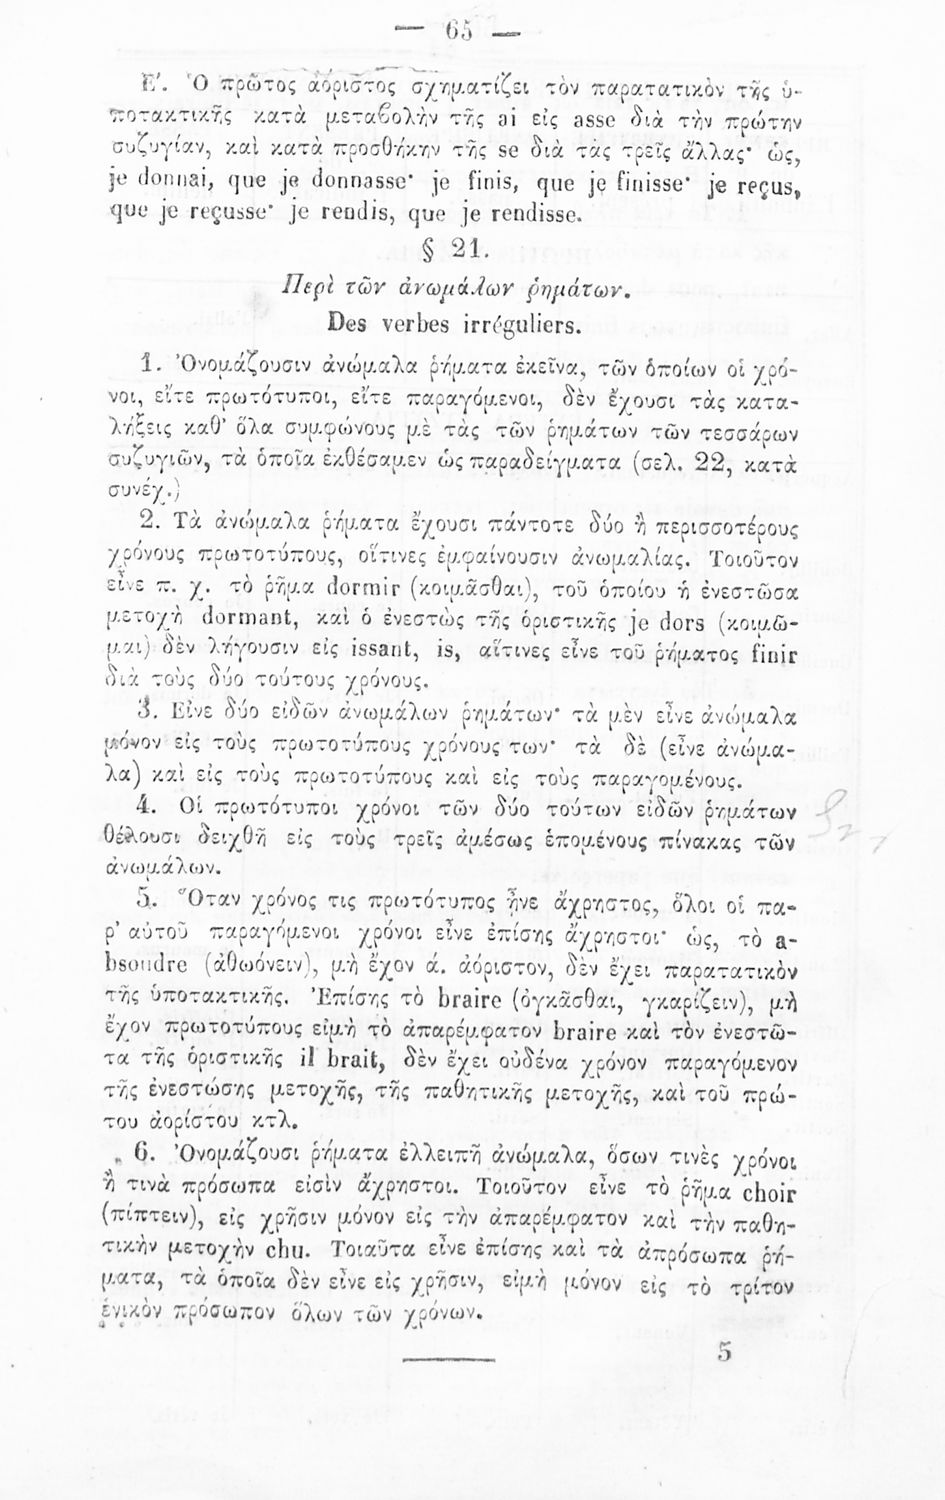 — 65 —
Ε′. Ὁ πρῶτος ἀόριστος σχηματίζει τὸν παρατατικὸν τῆς ὑ-
ποτακτικῆς κατὰ μεταβολὴν τῆς ai εἰς asse διὰ τὴν πρώτην
συζυγίαν, καὶ κατὰ προσθήκην τῆς se διὰ τὰς τρεῖς ἄλλας· ὡς,
je donnai, que je donnasse· je finis, que je finisse· je reçus,
que je reçusse· je rendis, que je rendisse.
§ 21.
Περὶ τῶν ἀνωμάλων ῥημάτων.
Des verbes irréguliers.
1. Ὀνομάζουσιν ἀνώμαλα ῥήματα ἐκεῖνα, τῶν ὁποίων οἱ χρό-
νοι, εἴτε πρωτότυποι, εἴτε παραγόμενοι, δὲν ἔχουσι τὰς κατα-
λήξεις καθ' ὅλα συμφώνους μὲ τὰς τῶν ῥημάτων τῶν τεσσάρων
συζυγιῶν, τὰ ὁποῖα ἐκθέσαμεν ὡς παραδείγματα (σελ. 22, κατὰ
συνέχ.)
2. Τὰ ἀνώμαλα ῥήματα ἔχουσι πάντοτε δύο ἢ περισσοτέρους
χρόνους πρωτοτύπους, οἵτινες ἐμφαίνουσιν ἀνωμαλίας. Τοιοῦτον
εἶνε π. χ. τὸ ῥῆμα dormir (κοιμᾶσθαι), τοῦ ὁποίου ἡ ἐνεστῶσα
μετοχὴ dormant, καὶ ὁ ἐνεστὼς τῆς ὁριστικῆς je dors (κοιμῶ-
μαι) δὲν λήγουσιν εἰς issant, is, αἵτινες εἶνε τοῦ ῥήματος finir
διὰ τοὺς δύο τούτους χρόνους.
3. Εἶνε δύο εἰδῶν ἀνωμάλων ῥημάτων· τὰ μὲν εἶνε ἀνώμαλα
μόνον εἰς τοὺς πρωτοτύπους χρόνους των· τὰ δὲ (εἶνε ἀνώμα-
λα) καὶ εἰς τοὺς πρωτοτύπους καὶ εἰς τοὺς παραγομένους.
4. Οἱ πρωτότυποι χρόνοι τῶν δύο τούτων εἰδῶν ῥημάτων
θέλουσι δειχθῆ εἰς τοὺς τρεῖς ἀμέσως ἑπομένους πίνακας τῶν
ἀνωμάλων.
5. Ὅταν χρόνος τις πρωτότυπος ἦνε ἄχρηστος, ὅλοι οἱ πα-
ρ' αὐτοῦ παραγόμενοι χρόνοι εἶνε ἐπίσης ἄχρηστοι· ὡς, τὸ a-
bsoudre (ἀθωόνειν), μὴ ἔχον ά. ἀόριστον, δὲν ἔχει παρατατικὸν
τῆς ὑποτακτικῆς. Ἐπίσης τὸ braire (ὀγκᾶσθαι, γκαρίζειν), μὴ
ἔχον πρωτοτύπους εἰμὴ τὸ ἀπαρέμφατον braire καὶ τὸν ἐνεστῶ-
τα τῆς ὁριστικῆς il brait, δὲν ἔχει οὐδένα χρόνον παραγόμενον
τῆς ἐνεστώσης μετοχῆς, τῆς παθητικῆς μετοχῆς, καὶ τοῦ πρώ-
του ἀορίστου κτλ.
6. Ὀνομάζουσι ῥήματα ἐλλειπῆ ἀνώμαλα, ὅσων τινὲς χρόνοι
ἢ τινὰ πρόσωπα εἰσὶν ἄχρηστοι. Τοιοῦτον εἶνε τὸ ῥῆμα choir
(πίπτειν), εἰς χρῆσιν μόνον εἰς τὴν ἀπαρέμφατον καὶ τὴν παθη-
τικὴν μετοχὴν chu. Τοιαῦτα εἶνε ἐπίσης καὶ τὰ ἀπρόσωπα ῥή-
ματα, τὰ ὁποῖα δὲν εἶνε εἰς χρῆσιν, εἰμὴ μόνον εἰς τὸ τρίτον
ἑνικὸν πρόσωπον ὅλων τῶν χρόνων.
5